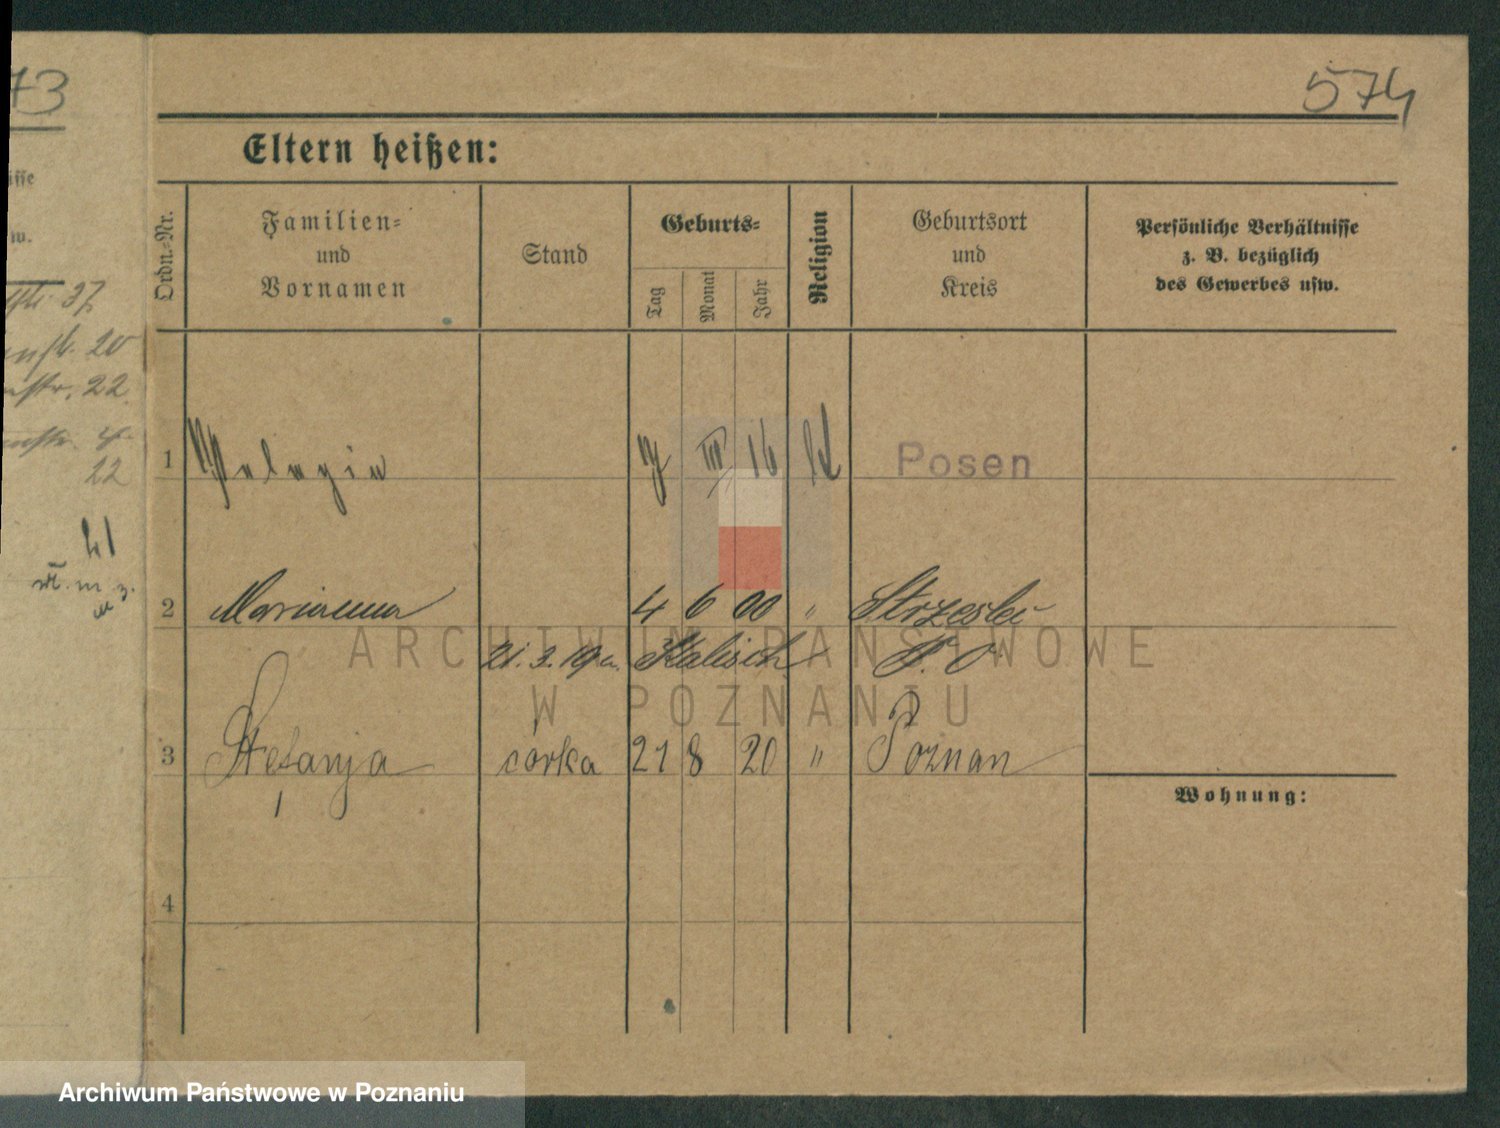 73
574
Eltern heißen:
Ordn.-Nr.
Familien-
und
Vornamen
Stand
Geburts-
Tag
Monat
Jahr
Religion
Geburtsort
und
Kreis
Persönliche Verhältnisse
z. B. bezüglich
des Gewerbes usw.
isse
w.
37
20
str. 22
4
12
1 Pelagia 7 III 16 kl Posen
2 Marianna 4 6 00 "
21. 3. 19 Kalisch
3 Stefanja córka 21 8 20 " Poznan
4
Wohnung:
ARCHIWUM PAŃSTWOWE
W POZNANIU
Archiwum Państwowe w Poznaniu